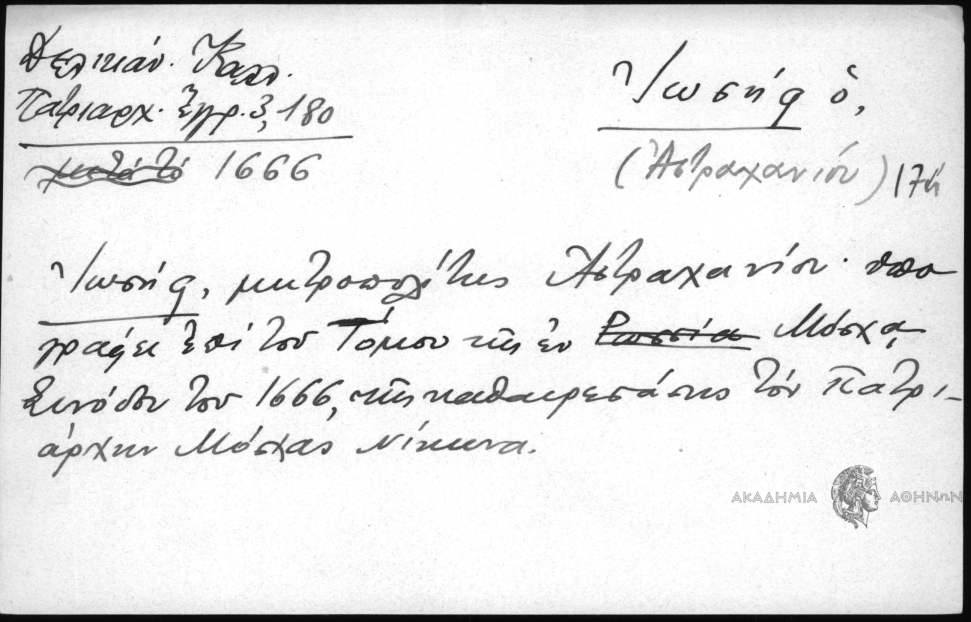 Δελικάν. Καλλ.
Πατριαρχ. Ἔγγρ. 3, 180
μετὰ τὸ 1666
Ἰωσὴφ ὁ,
(Ἀστραχανίου) 17ῃ
Ἰωσὴφ, μητροπολίτης Ἀστραχανίου· ὑπο
γράφει ἐπὶ τοῦ Τόμου τῆς ἐν Ρωσσίᾳ Μόσχᾳ
Συνόδου τοῦ 1666, τῆς καθαιρεσάσης τὸν Πατρι-
άρχην Μόσχας Νίκωνα.
ΑΚΑΔΗΜΙΑ ΑΘΗΝΩΝ